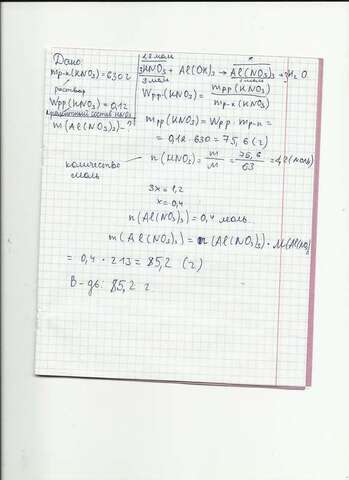 Дано:
mр-к(HNO3)=630г
раствор
Wрр(HNO3)=0,12
m(Al(NO3)3)-?
1,2 моль x
3HNO3 + Al(OH)3 → Al(NO3)3 + 3H2O
3 моль 1 моль
Wрр.(HNO3)= mрр(HNO3)
mр-к(HNO3)
mрр(HNO3)= Wрр · mр-к=
= 0,12 · 630= 75,6 (г)
количество
моль
n(HNO3)= m/M = 75,6/63 =1,2(моль)
3x=1,2
x=0,4
n(Al(NO3)3)=0,4 моль
m(Al(NO3)3)=n(Al(NO3)3) · M(Al(NO3)
= 0,4 · 213= 85,2 (г)
В-дь: 85,2 г